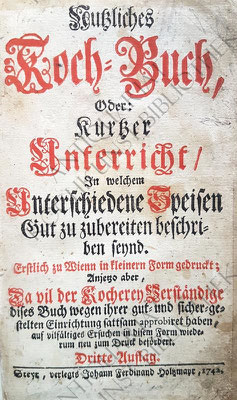 Nutzliches
Koch-Buch,
Oder:
Kurtzer
Unterricht/
In welchem
Unterschiedene Speisen
Gut zu zubereiten beschri-
ben seynd.
Erstlich zu Wienn in kleinern Form gedruckt;
Anjetzo aber
Da vil der Kocherey Verständige
dises Buch wegen ihrer gut- und sicher-ge-
stelten Einrichtung sattsam approbiret haben,
auf vilfältiges Ersuchen in disem Form wiede-
rum neu zum Druck befördert.
Dritte Auflag.
Steyr, verlegts Johann Ferdinand Holtzmayr, 1742.